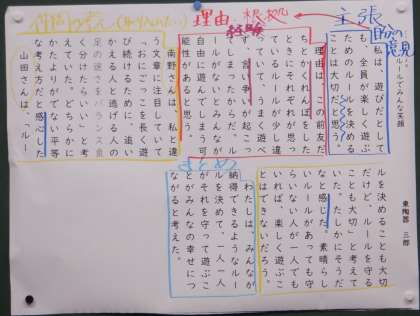 主張
自分の意見
理由・根拠
経験
仲間の考え
ルールでみんな笑顔
東陶器 三郎
私は、遊びだとして
も全員が楽しく遊ぶ
ためのルールを決める
ことは大切だと思う。
理由は、この前友だ
ちとかくれんぼをした
ときにそれぞれが思っ
ているルールが少し違
っていて、うまく遊べ
ず、言い争いが起こっ
てしまったからだ。ルー
ルがないとみんなが
自由に遊んでしまう可
能性がある。
南野さんは、私と違
う文章に注目していて
「おにごっこを長く遊
び続けるために、追い
かける人と逃げる人の
足の速さをバランス良
く分けたらいい」と考
えていた。どちらかに
かたよりがでない平等
な考え方だと感心した
山田さんは、「ルー
ルを決めることも大切
だけど、ルールを守る
ことも大切」と考えて
いた。たしかにそうだ
なと感じた。素晴らし
いルールがあっても守
らない人が一人でも
いれば、楽しく遊ぶこ
とはできないだろう。
まとめ
わたしは、みんなが
納得できるようなルー
ルを決めて、一人一人
がそれを守って遊ぶこ
とがみんなの幸せにつ
ながると考えた。